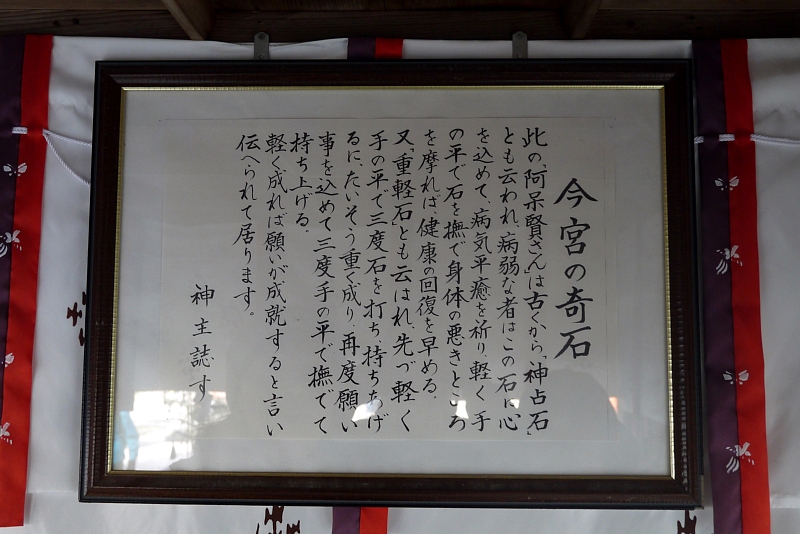 今宮の奇石
此の「阿呆賢さん」は古くから、「神占石」
とも云われ、病弱な者はこの石に心
を込めて、病気平癒を祈り、軽く手
の平で石を撫で身体の悪きところ
を摩れば、健康の回復を早める。
又、「重軽石」とも云はれ、先づ軽く
手の平で三度石を打ち、持ちあげ
るに、たいそう重く成り、再度願い
事を込めて三度手の平で撫でて
持ち上げる。
軽く成れば願いが成就すると言い
伝へられて居ります。
神主誌す